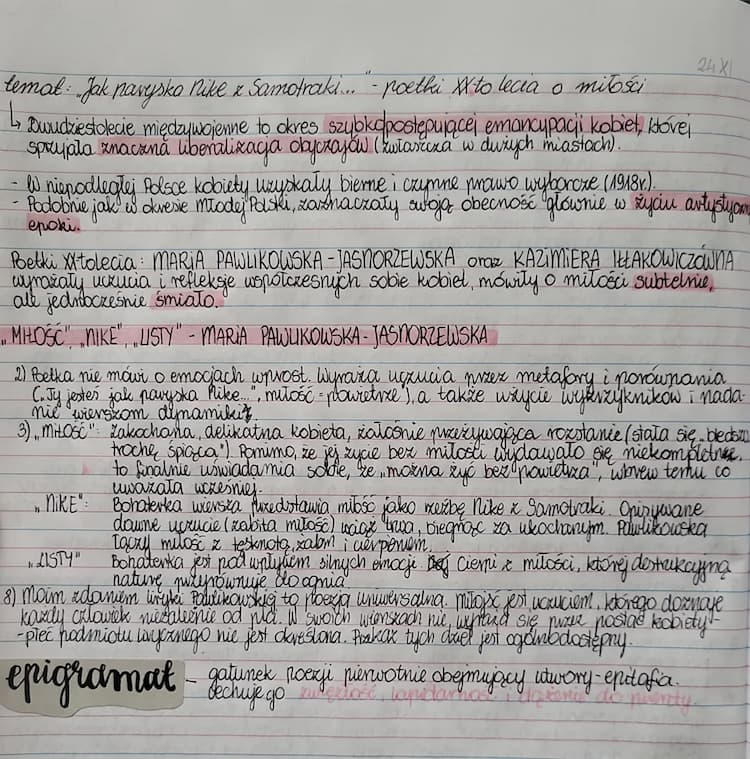 24 XI
temat: "Jak paryska Nike z Samotraki..." - poetki XXto lecia o miłości
↳ Dwudziestolecie międzywojenne to okres szybkopostępującej emancypacji kobiet, której
sprzyjała znaczna liberalizacja obyczajów (zwłaszcza w dużych miastach).
- W niepodległej Polsce kobiety uzyskały bierne i czynne prawo wyborcze (1918r).
- Podobnie jak w okresie Młodej Polski, zaznaczały swoją obecność głównie w życiu artystycznym
epoki.
Poetki XXtolecia: MARIA PAWLIKOWSKA-JASNORZEWSKA oraz KAZIMIERA IŁŁAKOWICZÓWNA
wyrażały uczucia i refleksje współczesnych sobie kobiet, mówiły o miłości subtelnie,
ale jednocześnie śmiało.
"MIŁOŚĆ", "NIKE", "LISTY" - MARIA PAWLIKOWSKA-JASNORZEWSKA
2) Poetka nie mówi o emocjach wprost. Wyraża uczucia przez metafory i porównania
("Ty jesteś jak paryska Nike...", miłość = powietrze), a także użycie wykrzykników i nada-
nie wierszom dynamiki.
3) "MIŁOŚĆ": Zakochana, delikatna kobieta, żałośnie przeżywająca rozstanie (stała się "bledsza,
trochę śpiąca"). Pomimo, że jej życie bez miłości wydawało się niekompletne,
to finalnie uświadamia sobie, że "można żyć bez powietrza", wbrew temu co
uważała wcześniej.
"NIKE": Bohaterka wiersza przedstawia miłość jako rzeźbę Nike z Samotraki. Opisywane
dawne uczucie (zabita miłość) wciąż trwa, biegnąc za ukochanym. Pawlikowska
łączy miłość z tęsknotą, żalem i cierpieniem.
"LISTY" Bohaterka jest pod wpływem silnych emocji. Cierpi z miłości, której destrukcyjną
naturę przyrównuje do ognia.
8) Moim zdaniem liryki Pawlikowskiej to poezja uniwersalna. Miłość jest uczuciem, którego doznaje
każdy człowiek niezależnie od płci. W swoich wierszach nie wyraża się przez postać kobiety-
-płeć podmiotu lirycznego nie jest określona. Przekaz tych dzieł jest ogólnodostępny.
epigramat - gatunek poezji pierwotnie obejmujący utwory-epitafia.
Cechuje go zwięzłość, lapidarność i dążenie do puenty.